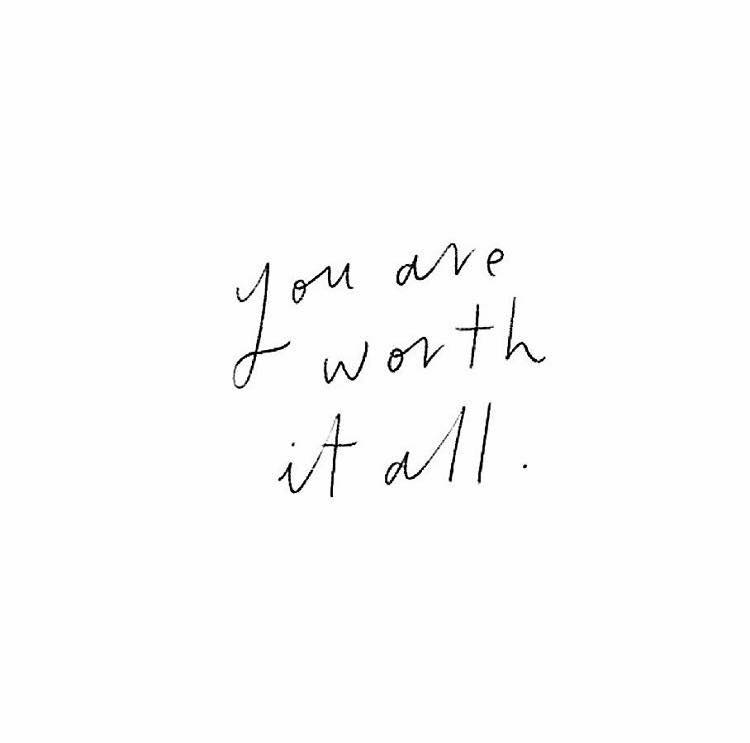 you are
worth
it all.